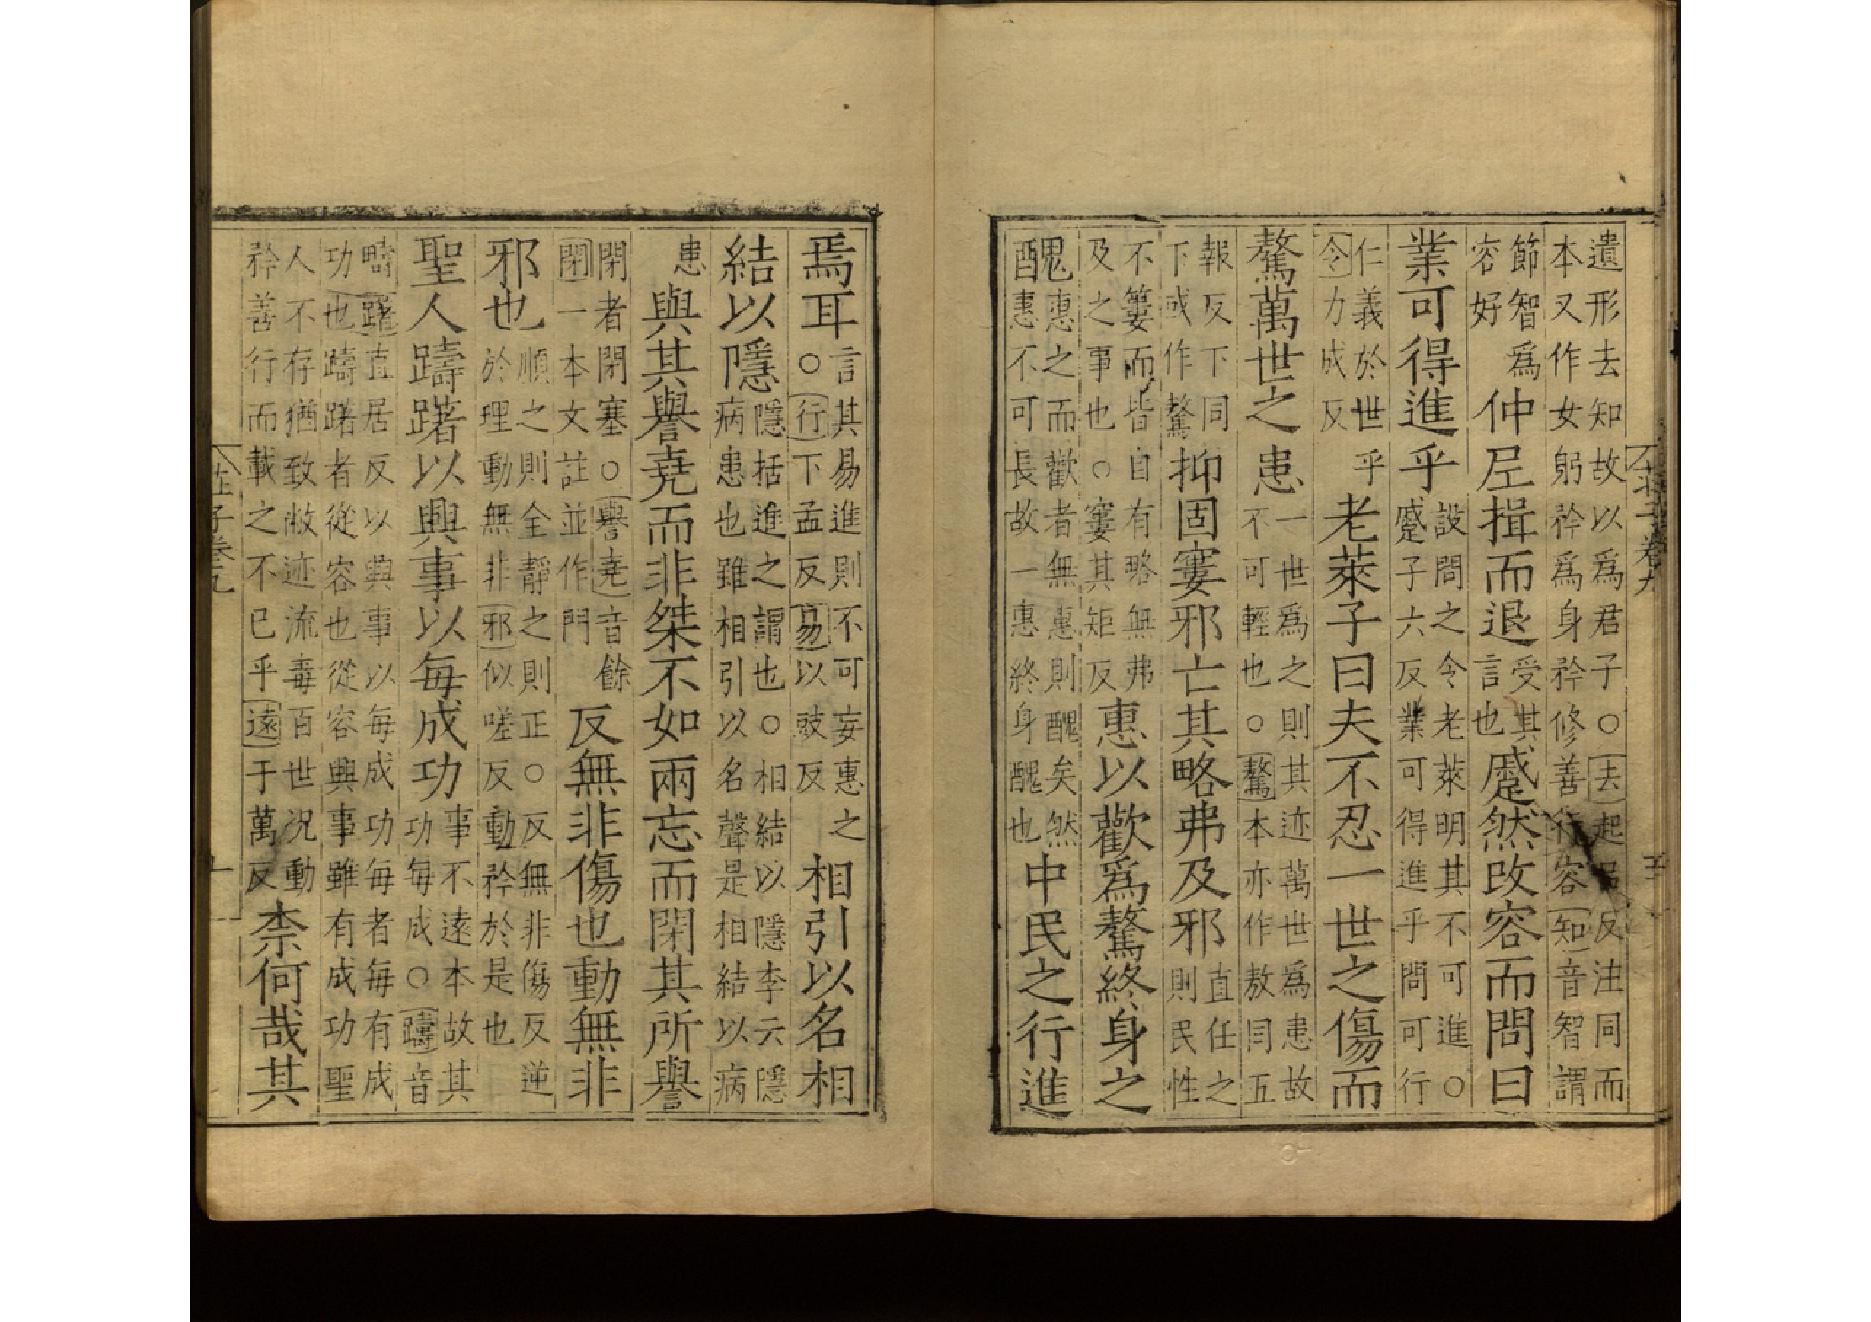 遺形去知故以爲君子○去起呂反注同而
本又作女躬矜爲身矜修善行容知音智謂
節智爲
容好
仲尼揖而退
受其
言也
蹙然改容而問曰
業可得進乎
設問之令老萊明其不可進○
蹙子六反業可得進乎問可行
仁義於世乎
令力成反
老萊子曰夫不忍一世之傷而
驁萬世之患
一世爲之則其迹萬世爲患故
不可輕也○驁本亦作敖同五
報反下同
下或作驁
抑固窶邪亡其略弗及邪
直任之
則民性
不窶而皆自有略無弗
及之事也○窶其矩反
惠以歡爲驁終身之
醜
惠之而歡者無惠則醜矣然
惠不可長故一惠終身醜也
中民之行進
焉耳
言其易進則不可妄惠之
○行下孟反易以豉反
相引以名相
結以隱
隱括進之謂也○相結以隱李云隱
病患也雖相引以名聲是相結以病
患
與其譽堯而非桀不如兩忘而閉其所譽
閉者閉塞○譽堯音餘
閉一本文註並作門
反無非傷也動無非
邪也
順之則全靜之則正○反無非傷反逆
於理動無非邪似嗟反動矜於是也
聖人躊躇以興事以每成功
事不遠本故其
功每成○躊音
疇躇直居反以興事以每成功每者每有成
功也躊躇者從容也從容興事雖有成功聖
人不存猶致敝迹流毒百世况動
矜善行而載之不已乎遠于萬反
柰何哉其
莊子卷九